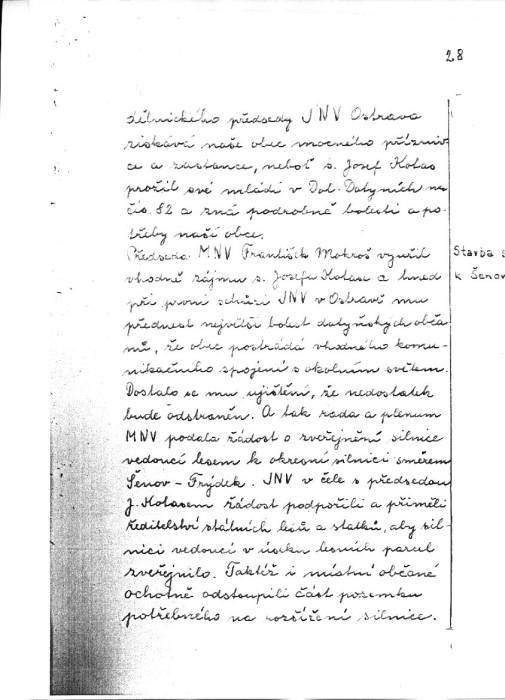 28
dělnického předsedy JNV Ostrava
získává naše obec mocného přízniv-
ce a zastance, neboť s. Josef Kolas
prožil své mládí v Dol. Datyních na
čís. 82 a zná podrobně bolesti a po-
třeby naší obce.
Předseda MNV František Mokroš využil
vhodně zájmu s. Josefa Kolase a hned
při první schůzi JNV v Ostravě mu
přednest největší bolest datyňských obča-
nů, že obec postrádá vhodného komu-
nikačního spojení s okolním světem.
Dostalo se mu ujištění, že nedostatek
bude odstraněn. A tak rada a plenum
MNV podala žádost o zveřejnění silnice
vedoucí lesem k okresní silnici směrem
Šenov - Frýdek. JNV v čele s předsedou
J. Kolasem žádost podpořili a přiměli
ředitelství státních lesů a statků, aby sil-
nici vedoucí v úseku lesních parcel
zveřejnilo. Taktéž i místní občané
ochotně odstoupili část pozemku
potřebného na rozšíření silnice.
Stavba s
k Šenov